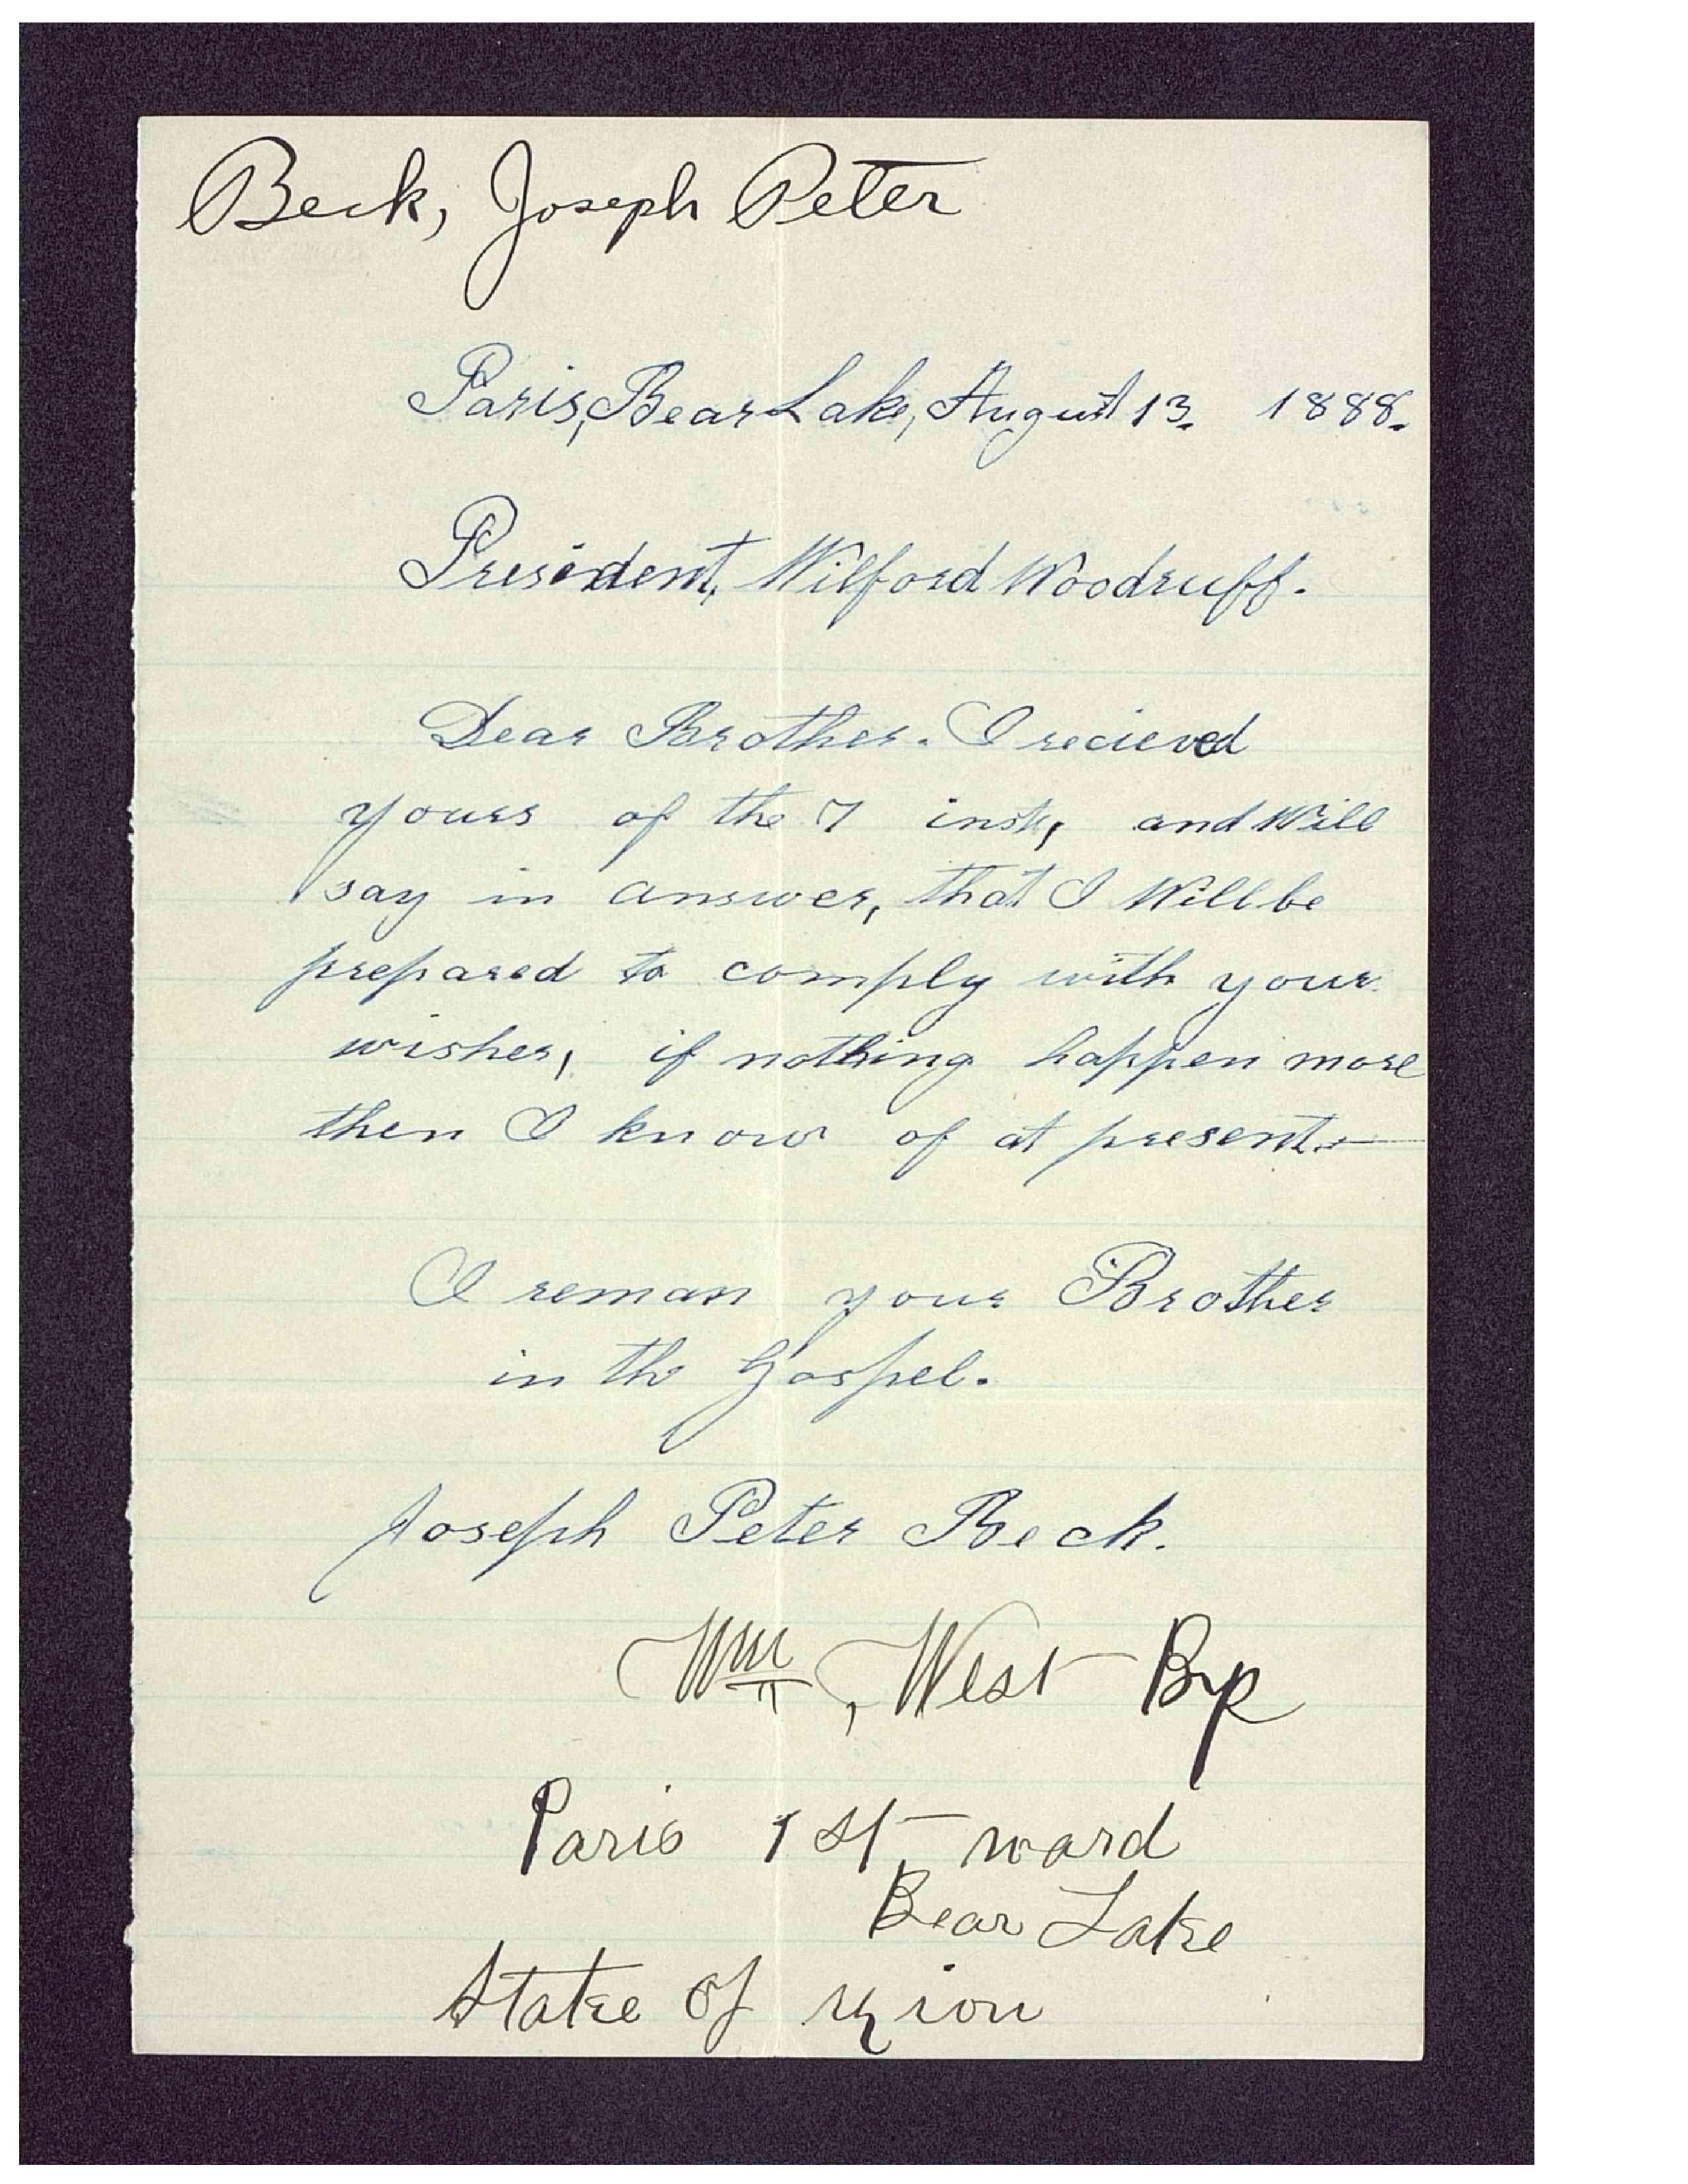 Beck, Joseph Peter
Paris, Bear Lake, August 13. 1888.
President, Wilford Woodruff.
Dear Brother. I recieved
yours of the 7 inst, and Will
say in answer, that I Will be
prepared to comply with your
wishes, if nothing happen more
then I know of at present.—
I reman your Brother
in the Gospel.
Joseph Peter Beck.
Wm, West Bp
Paris 1st ward
Bear Lake
Stake of Zion